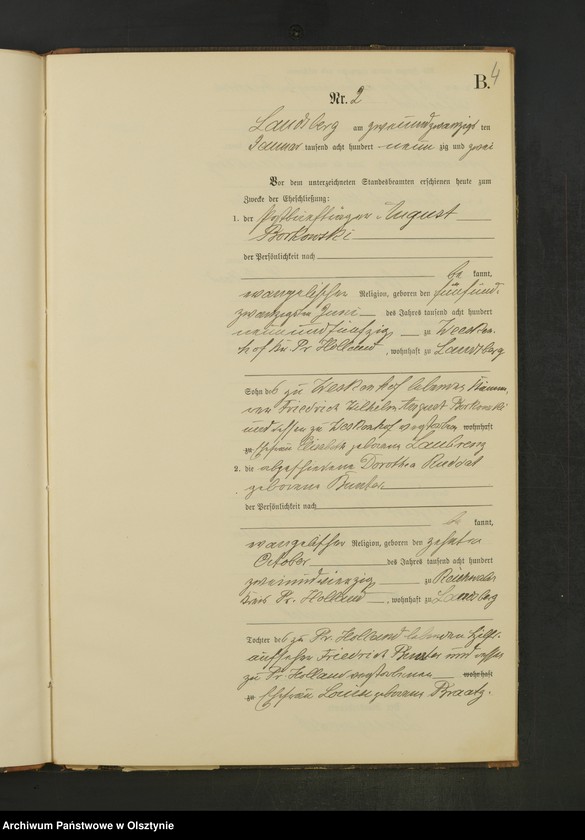 B. 4
Nr. 2
Landsberg am zweiundzwanzigs ten
Januar tausend acht hundert neun zig und zwei
Vor dem unterzeichneten Standesbeamten erschienen heute zum
Zwecke der Eheschließung:
1. der August
Borkowski
der Persönlichkeit nach
be kannt,
evangelischer Religion, geboren den fünfund-
zwanzigsten Juni des Jahres tausend acht hundert
neunundfünfzig zu Weesken-
hof Kr. Pr. Holland, wohnhaft zu Landsberg
Sohn des zu Weeskenhof lebenden
Friedrich Wilhelm August Borkowski
und dessen zu Weeskenhof verstorbenen wohnhaft
zu Ehefrau Elisabeth geborenen
2. die abgeschiedene Dorothea Ruddat
geborene Bunter
der Persönlichkeit nach
be kannt,
evangelischer Religion, geboren den zehnten
October des Jahres tausend acht hundert
zweiundvierzig zu Reichwalde
Kreis Pr. Holland, wohnhaft zu Landsberg
Tochter des zu Pr. Holland lebenden
aufseher Friedrich Bunter und dessen
zu Pr. Holland verstorbenen wohnhaft
zu Ehefrau Louise geborene Braatz.
Archiwum Państwowe w Olsztynie